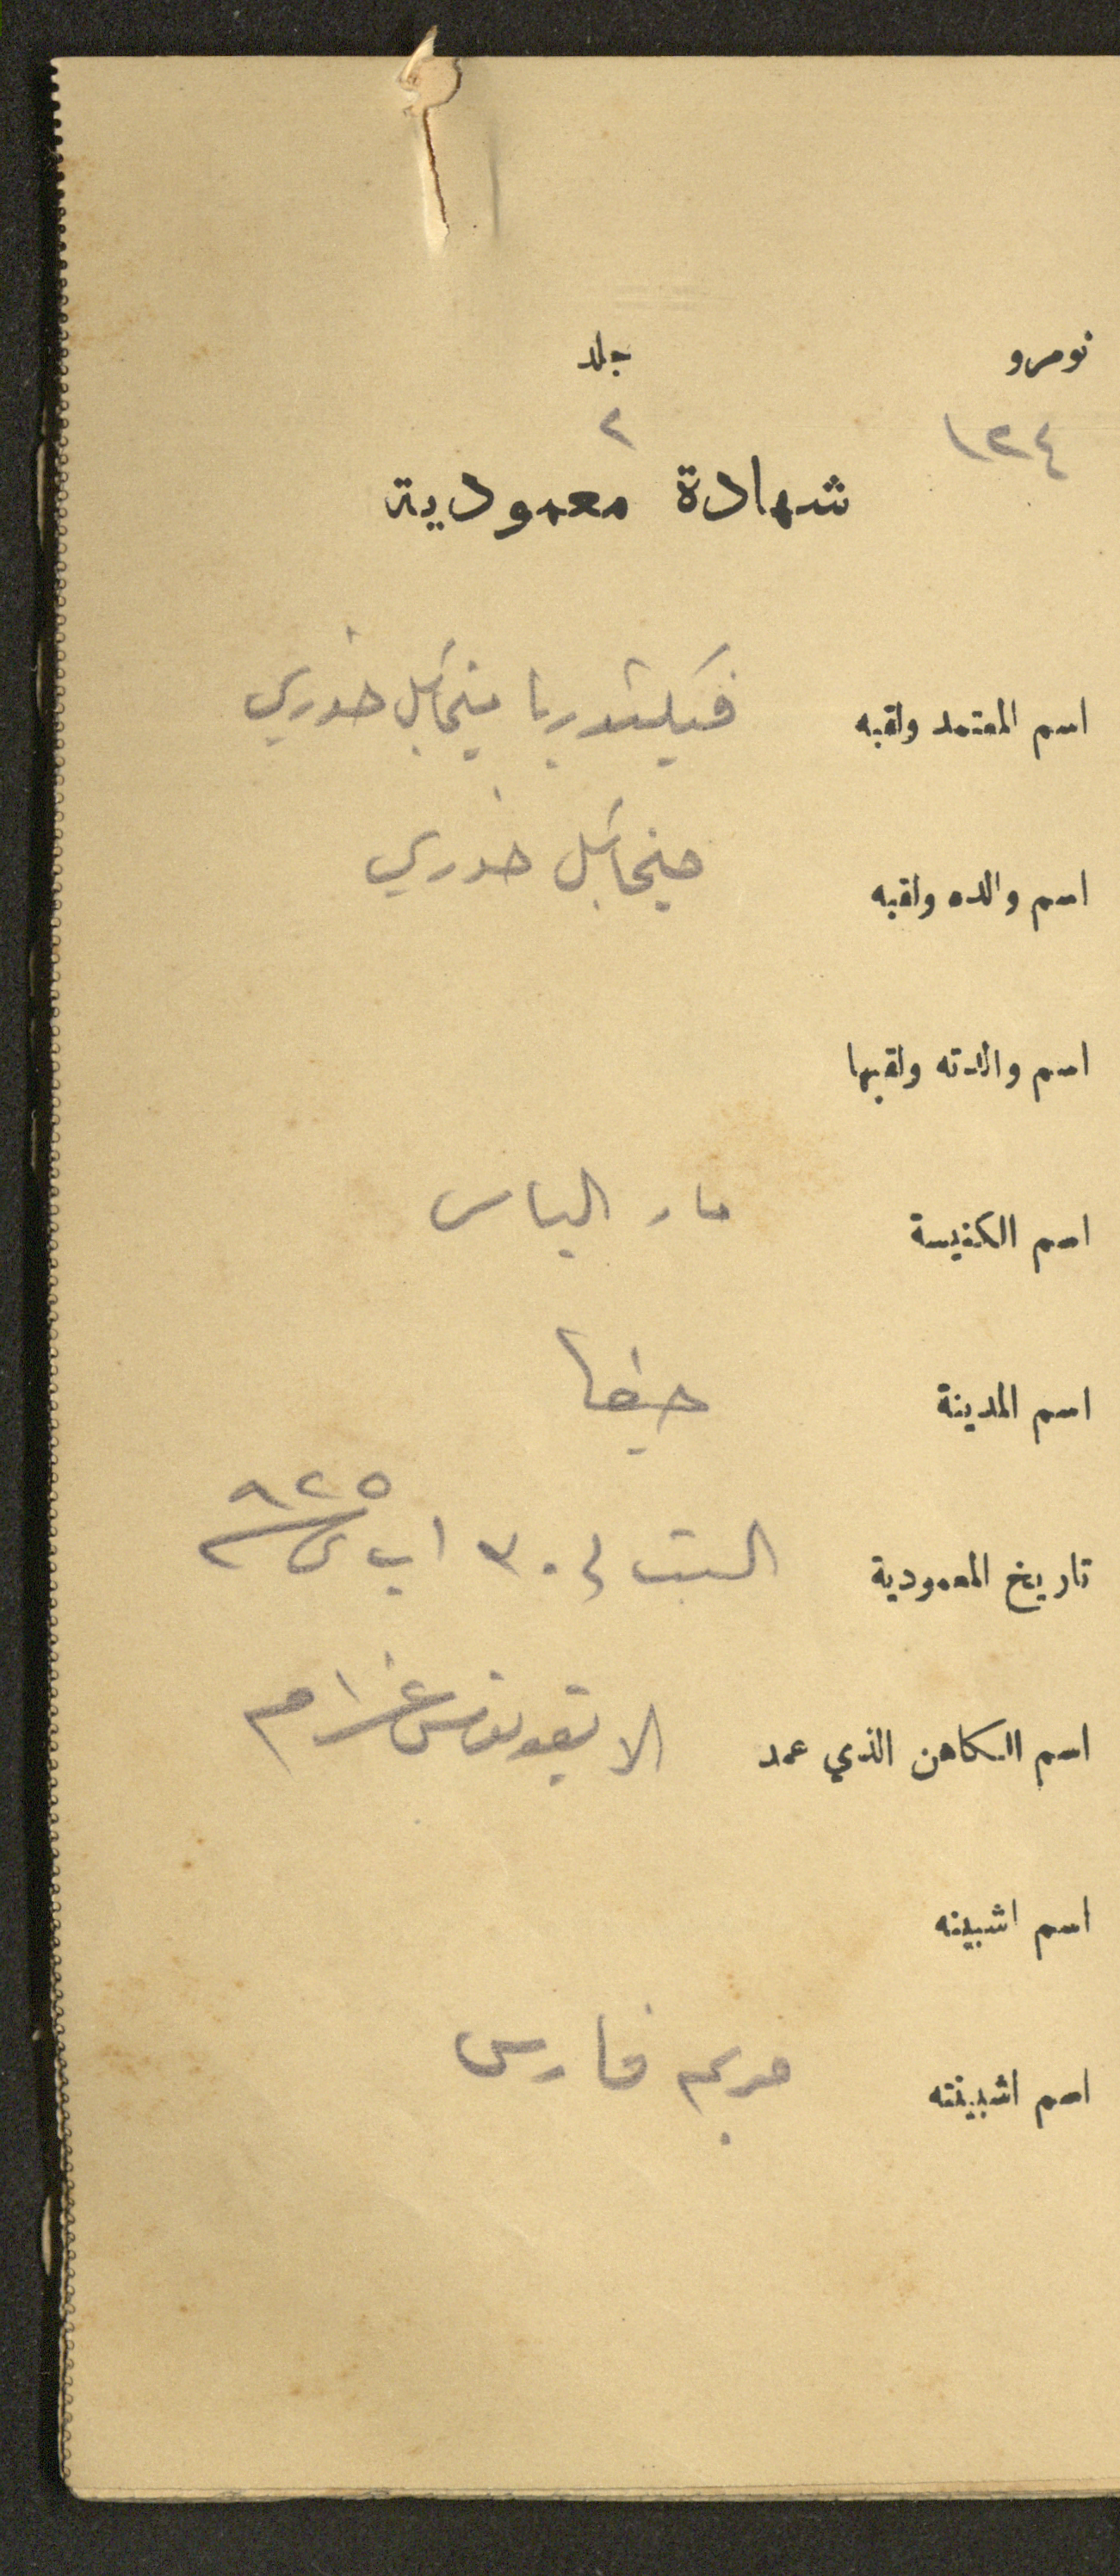 نومرو جلد
١٢٤ ٢
شهادة معمودية
اسم المعتمد ولقبه فيكتوريا ميخائيل خوري
اسم والده ولقبه ميخائيل خوري
اسم والدته ولقبها
اسم الكنيسة مار الياس
اسم المدينة حيفا
تاريخ المعمودية السبت في ٣٠ اب ٩٢٥
اسم الكاهن الذي عمد
اسم اشبينه
اسم اشبينته مريم فارس